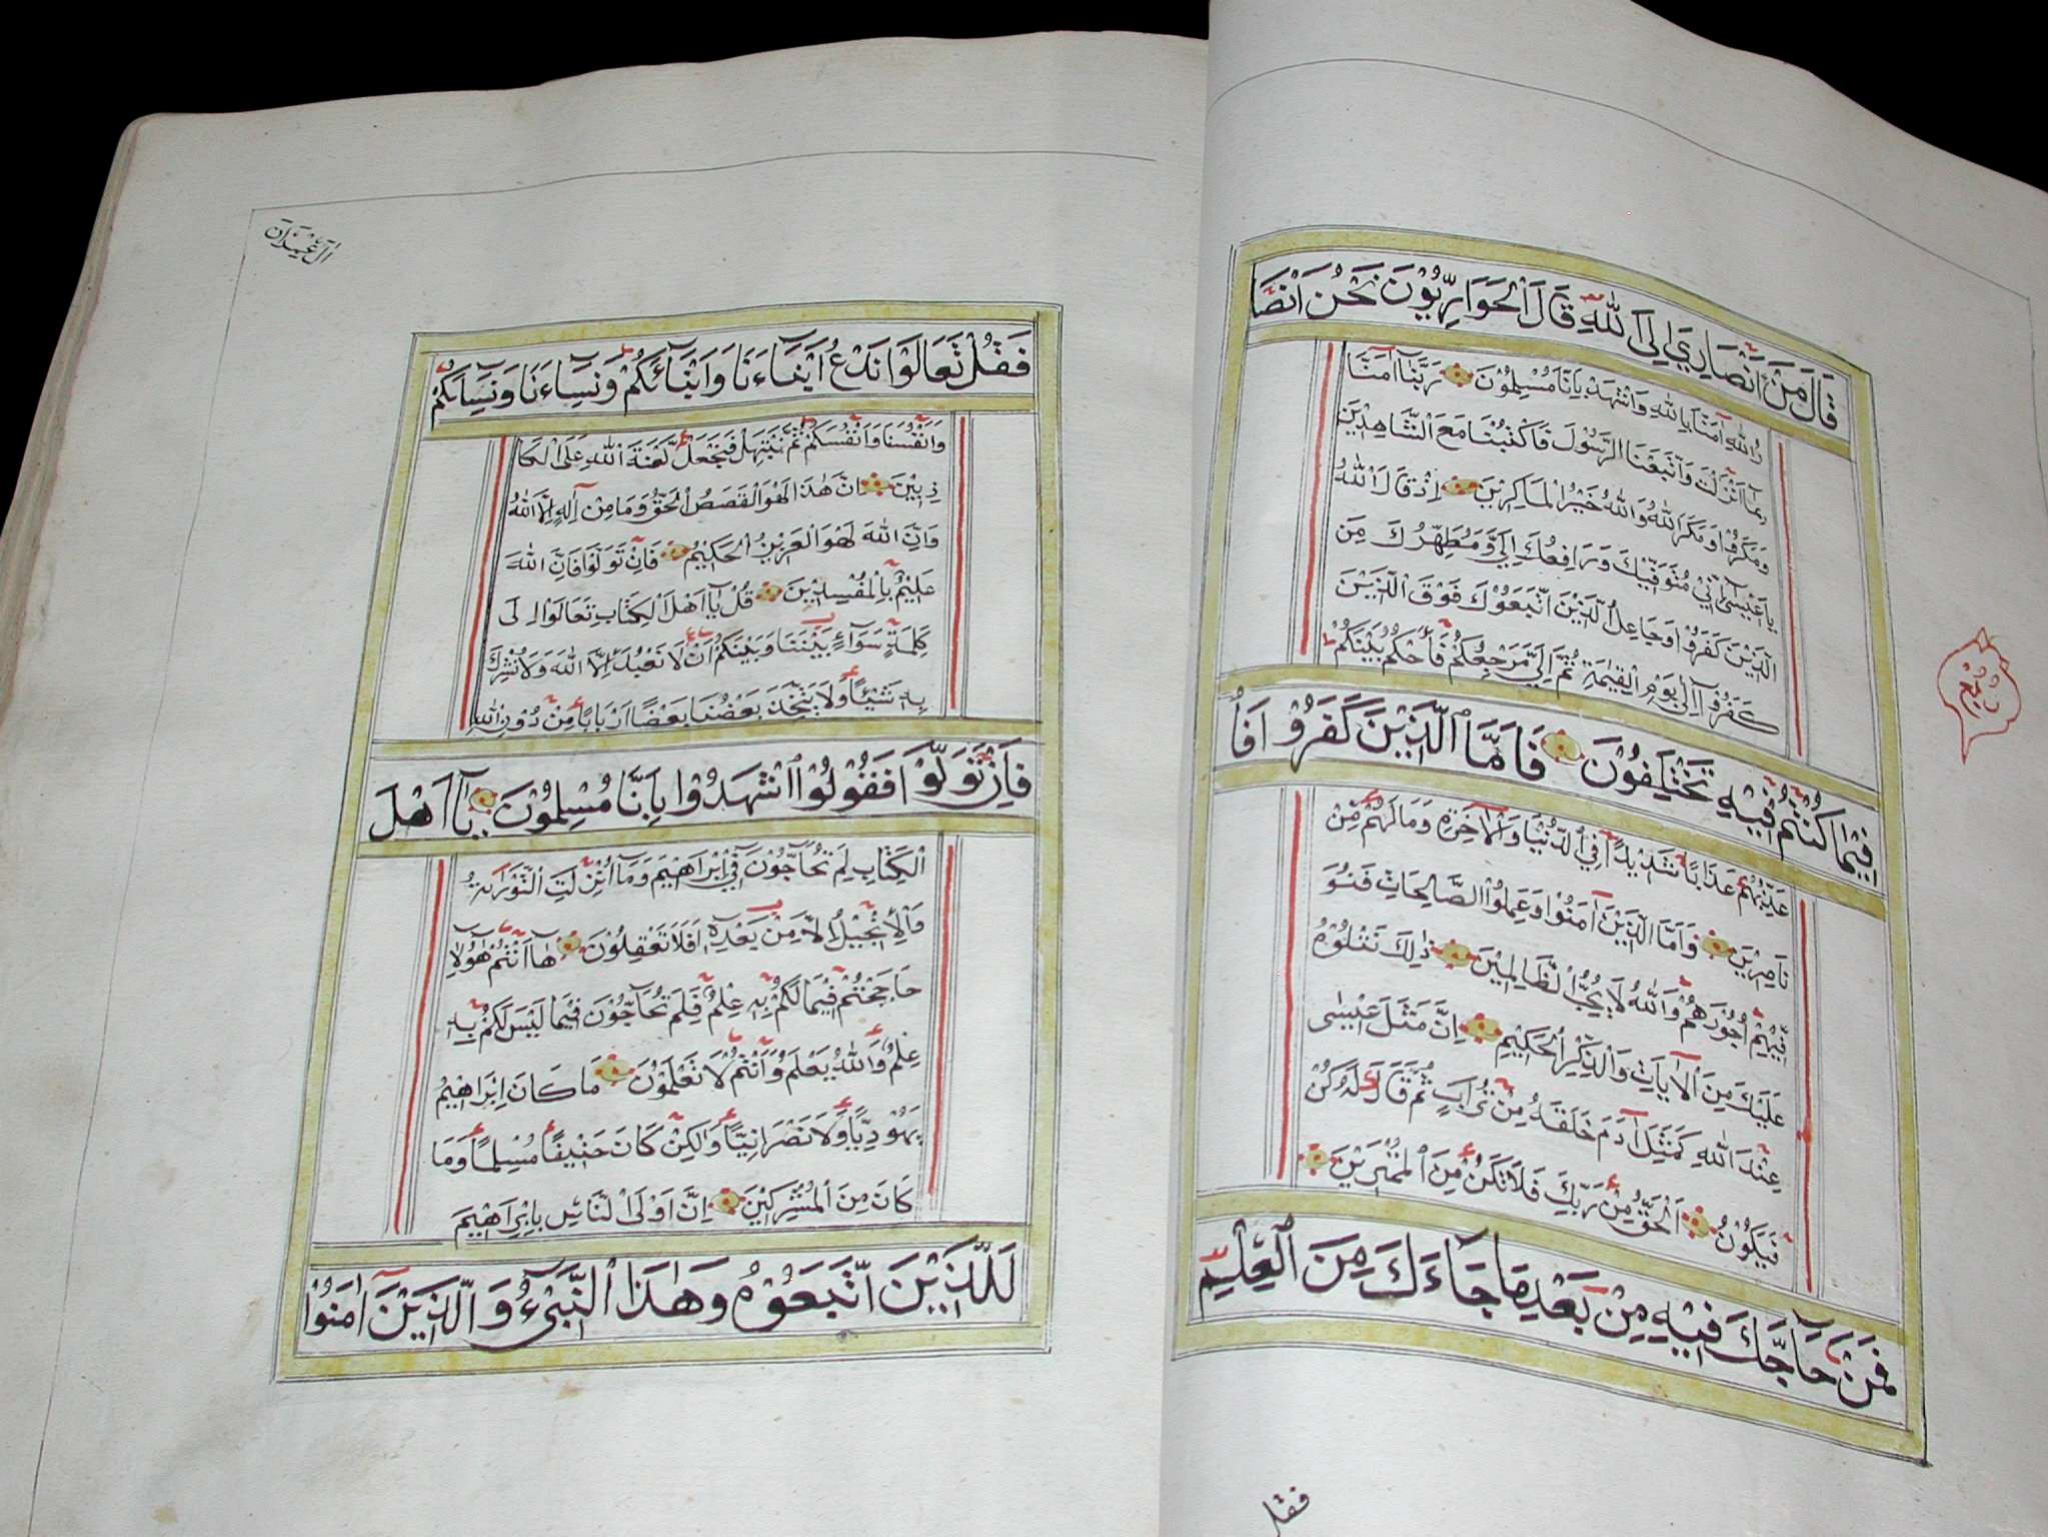 قَالَ مَنْ اَنْصَارِي اِلَى اللهِ قَالَ الْحَوَارِيُّوْنَ نَحْنُ اَنْصَا
رُ اللهِ اٰمَنَّا بِاللهِ وَاشْهَدْ بِاَنَّا مُسْلِمُوْنَ رَبَّنَا اٰمَنَّا
بِمَا اَنْزَلْتَ وَاتَّبَعْنَا الرَّسُوْلَ فَاكْتُبْنَا مَعَ الشَّاهِدِيْنَ
وَمَكَرُوْا وَمَكَرَ اللهُ وَاللهُ خَيْرُ الْمَاكِرِيْنَ اِذْ قَالَ اللهُ
يَا عِيْسٰى اِنِّيْ مُتَوَفِّيْكَ وَرَافِعُكَ اِلَيَّ وَمُطَهِّرُكَ مِنَ
الَّذِيْنَ كَفَرُوْا وَجَاعِلُ الَّذِيْنَ اتَّبَعُوْكَ فَوْقَ الَّذِيْنَ
كَفَرُوْآ اِلٰى يَوْمِ الْقِيٰمَةِ ثُمَّ اِلَيَّ مَرْجِعُكُمْ فَاَحْكُمُ بَيْنَكُمْ
فِيْمَا كُنْتُمْ فِيْهِ تَخْتَلِفُوْنَ فَاَمَّا الَّذِيْنَ كَفَرُوْا فَاُ
عَذِّبُهُمْ عَذَابًا شَدِيْدًا فِي الدُّنْيَا وَالْاٰخِرَةِ وَمَا لَهُمْ مِّنْ
نَاصِرِيْنَ وَاَمَّا الَّذِيْنَ اٰمَنُوْا وَعَمِلُوا الصَّالِحَاتِ فَنُوَ
فِّيْهِمْ اُجُوْرَهُمْ وَاللهُ لَا يُحِبُّ الظَّالِمِيْنَ ذٰلِكَ نَتْلُوْهُ
عَلَيْكَ مِنَ الْاٰيَاتِ وَالذِّكْرِ الْحَكِيْمِ اِنَّ مَثَلَ عِيْسٰى
عِنْدَ اللهِ كَمَثَلِ اٰدَمَ خَلَقَهُ مِنْ تُرَابٍ ثُمَّ قَالَ لَهُ كُنْ
فَيَكُوْنُ اَلْحَقُّ مِنْ رَبِّكَ فَلَا تَكُنْ مِنَ الْمُمْتَرِيْنَ
فَمَنْ حَاجَّكَ فِيْهِ مِنْ بَعْدِ مَا جَاءَكَ مِنَ الْعِلْمِ
ربع
فقل
اٰلِ عِمْرَان
فَقُلْ تَعَالَوْا نَدْعُ اَبْنَاءَنَا وَاَبْنَائَكُمْ وَنِسَاءَنَا وَنِسَائَكُمْ
وَاَنْفُسَنَا وَاَنْفُسَكُمْ ثُمَّ نَبْتَهِلْ فَنَجْعَلْ لَّعْنَةَ اللهِ عَلَى الْكَا
ذِبِيْنَ اِنَّ هٰذَا لَهُوَ الْقَصَصُ الْحَقُّ وَمَا مِنْ اِلٰهٍ اِلَّا اللهُ
وَاِنَّ اللهَ لَهُوَ الْعَزِيْزُ الْحَكِيْمُ فَاِنْ تَوَلَّوْا فَاِنَّ اللهَ
عَلِيْمٌ بِالْمُفْسِدِيْنَ قُلْ يَا اَهْلَ الْكِتَابِ تَعَالَوْا اِلٰى
كَلِمَةٍ سَوَآءٍ بَيْنَنَا وَبَيْنَكُمْ اَنْ لَا نَعْبُدَ اِلَّا اللهَ وَلَا نُشْرِكَ
بِهِ شَيْئًا وَلَا يَتَّخِذَ بَعْضُنَا بَعْضًا اَرْبَابًا مِنْ دُوْنِ اللهِ
فَاِنْ تَوَلَّوْا فَقُوْلُوا اشْهَدُوْا بِاَنَّا مُسْلِمُوْنَ يَا اَهْلَ
الْكِتَابِ لِمَ تُحَاجُّوْنَ فِيْ اِبْرَاهِيْمَ وَمَا اُنْزِلَتِ التَّوْرٰىةُ
وَالْاِنْجِيْلُ اِلَّا مِنْ بَعْدِهٖ اَفَلَا تَعْقِلُوْنَ هٰٓا اَنْتُمْ هٰؤُلَاءِ
حَاجَجْتُمْ فِيْمَا لَكُمْ بِهٖ عِلْمٌ فَلِمَ تُحَاجُّوْنَ فِيْمَا لَيْسَ لَكُمْ بِهٖ
عِلْمٌ وَاللهُ يَعْلَمُ وَاَنْتُمْ لَا تَعْلَمُوْنَ مَا كَانَ اِبْرَاهِيْمُ
يَهُوْدِيًّا وَلَا نَصْرَانِيًّا وَلٰكِنْ كَانَ حَنِيْفًا مُسْلِمًا وَمَا
كَانَ مِنَ الْمُشْرِكِيْنَ اِنَّ اَوْلَى النَّاسِ بِاِبْرَاهِيْمَ
لَلَّذِيْنَ اتَّبَعُوْهُ وَهٰذَا النَّبِىْءُ وَالَّذِيْنَ اٰمَنُوْا